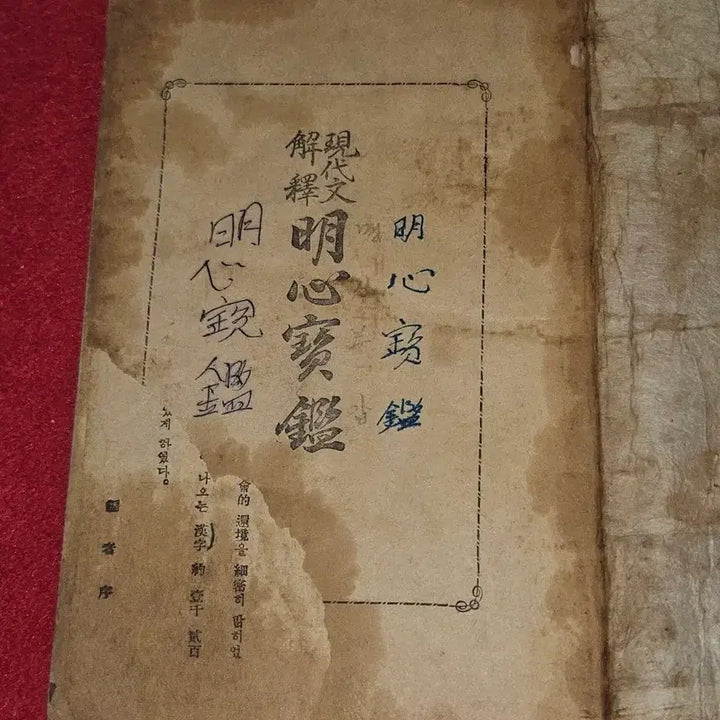 明心寶鑑
現代文
解釋
明心寶鑑
明心寶鑑
會的 環境을 細密히 밝히었
나오는 漢字 約 壹千 貳百
있게 하였다。
者 序